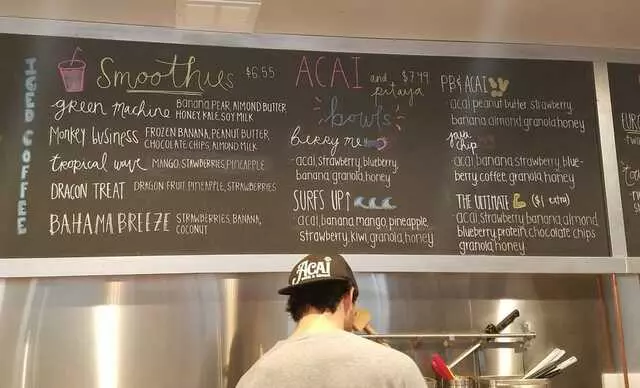 ICED COFFEE
Smoothies $6.55
green machine BANANA, PEAR, ALMOND BUTTER,
HONEY, KALE, SOY MILK
Monkey business FROZEN BANANA, PEANUT BUTTER,
CHOCOLATE CHIPS, ALMOND MILK
tropical wave MANGO, STRAWBERRIES, PINEAPPLE
DRAGON TREAT DRAGON FRUIT, PINEAPPLE, STRAWBERRIES
BAHAMA BREEZE STRAWBERRIES, BANANA,
COCONUT
ACAI and pitaya $7.99
bowls
berry me
-acai, strawberry, blueberry,
banana, granola, honey
SURFS UP!
-acai, banana, mango, pineapple,
strawberry, kiwi, granola, honey
PB & ACAI
-acai, peanut butter, strawberry,
banana, almond, granola, honey
java
chip
-acai, banana, strawberry, blue-
berry, coffee, granola, honey
THE ULTIMATE ($1 extra)
-acai, strawberry, banana, almond,
blueberry, protein, chocolate chips
granola, honey
ACAI